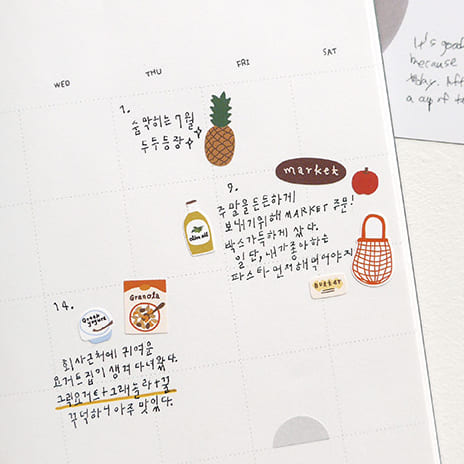 WED
THU
FRI
SAT
1.
숨막히는 7월
두두등장
market
9.
주말을 든든하게
보내기위해 MARKET 주문!
박스가득하게 샀다.
일단, 내가 좋아하는
파스타 먼저 해먹어야지
olive oil
BUTTER
14.
Greek
yogurt
GRANOLA
회사근처에 귀여운
요거트집이 생겨 다녀왔다.
그릭요거트+그래놀라+꿀
꾸덕하니 아주 맛있다.
It's good
because
today.
a cup of